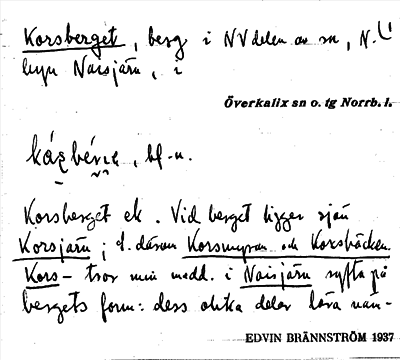 Korsberget, berg i NV delen av sn, N.
byn Naisjärv, i
Överkalix sn o. tg Norrb. l.
bl-n.
Korsberget ek. Vid berget ligger sjön
Korsjärv; d. därom Korsmyran och Korsbäcken.
Kors- tror min medd. i Naisjärv syfta på
bergets form: dess olika delar lära nän-
EDVIN BRÄNNSTRÖM 1937